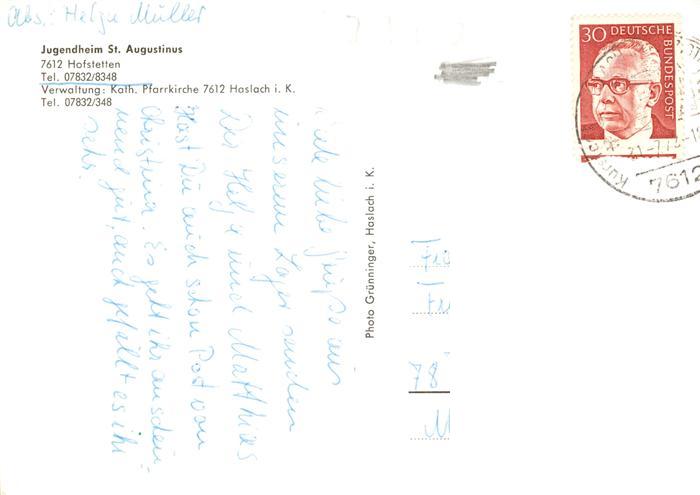 Abs.: Helga Müller
Jugendheim St. Augustinus
7612 Hofstetten
Tel. 07832/8348
Verwaltung: Kath. Pfarrkirche 7612 Haslach i. K.
Tel. 07832/348
30 DEUTSCHE BUNDESPOST
7612
Viele liebe Grüße aus
unserem Lager senden
Dir Helga und Matthias
Hast Du auch schon Post von
Christina. Es geht ihr anschei-
nend gut, auch gefällt es ihr
sehr.
Photo Grünninger, Haslach i. K.
78